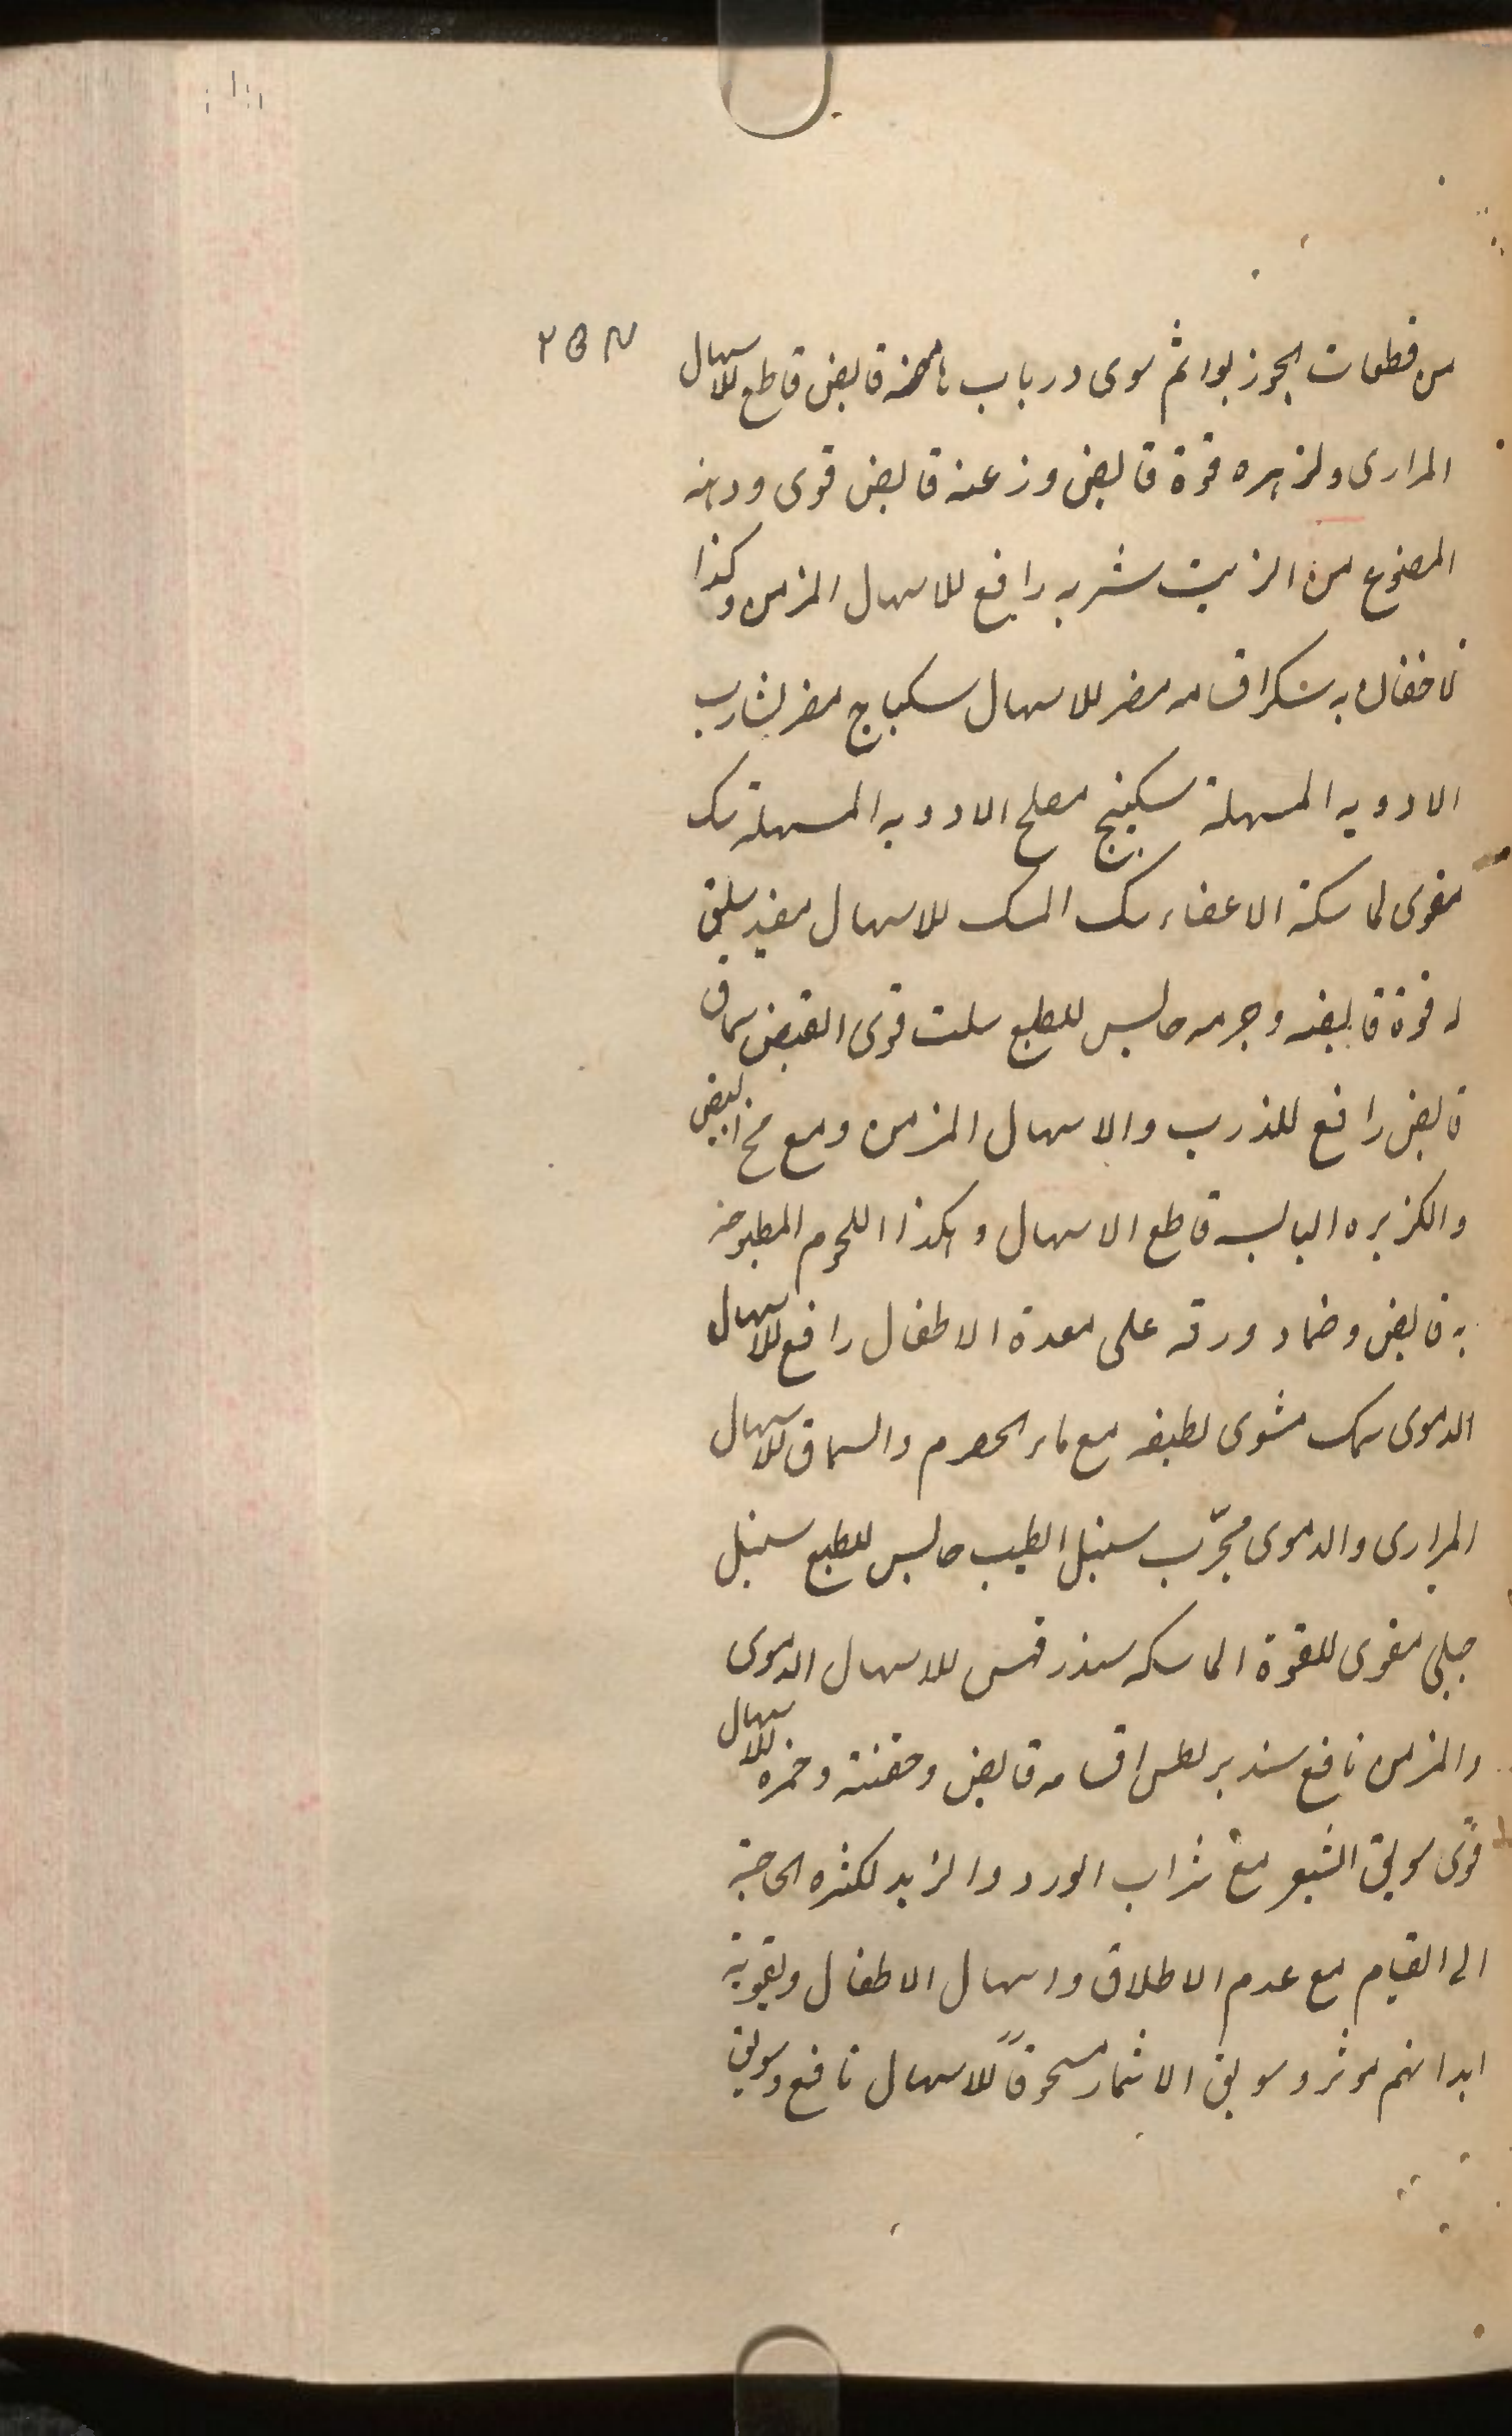 من قطعات الجوز بوا ثم سوى در باب قابض قاطع للاسهال
۲۵۲
المرارى ولزهره قوة قابض وزعنه قابض قوى ودهنه
المصنوع من الزيت شربه رافع للاسهال المزمن وكذا
اقسامه مضر للاسهال سكباج مضر لشارب
الادويه المسهلة سكبينج مصلح الادويه المسهلة سک
مقوى لماسكة الاعضاء سک المسک للاسهال مفيد سلق
له قوة قابضه وجرمه حابس للطبع سلت قوى القبض سماق
قابض رافع للذرب والاسهال المزمن ومع مخ البيض
والكزبره اليابسه قاطع الاسهال وهكذا اللحوم المطبوخه
به قابض وضماد ورقه على معدة الاطفال رافع للاسهال
الدموى سمک مشوى لطيفه مع ماء الحصرم والسماق للاسهال
المرارى والدموى مجرّب سنبل الطيب حابس للطبع سنبل
جبلى مقوى للقوة الماسكه للاسهال الدموى
والمزمن نافع اقسامه قابض وحقنته وخمره للاسهال
قوى سويق الشعير مع شراب الورد والزبد لكثره الحاجة
الى القيام مع عدم الاطلاق واسهال الاطفال وتقوية
ابدانهم موثر وسويق الاثمار مسحوقاً للاسهال نافع وسويق